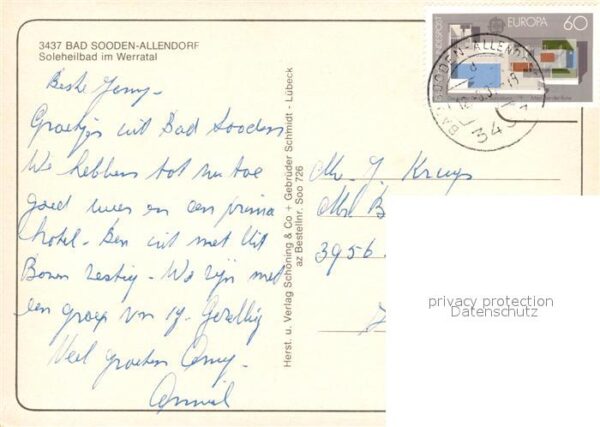 3437 BAD SOODEN-ALLENDORF
Soleheilbad im Werratal
Beste Jenny-
Groetjes uit Bad Sooden
We hebben tot nu toe
goed weer en een prima
hotel. Ben uit met Uit
Bonen zestig. We zijn met
een groep van 19. Gezellig
Veel groeten
Herst. u. Verlag Schöning & Co + Gebrüder Schmidt - Lübeck
az Bestellnr. Soo 726
DEUTSCHE BUNDESPOST
EUROPA 60
BAD SOODEN-ALLENDORF
343
J.
3956
privacy protection
Datenschutz